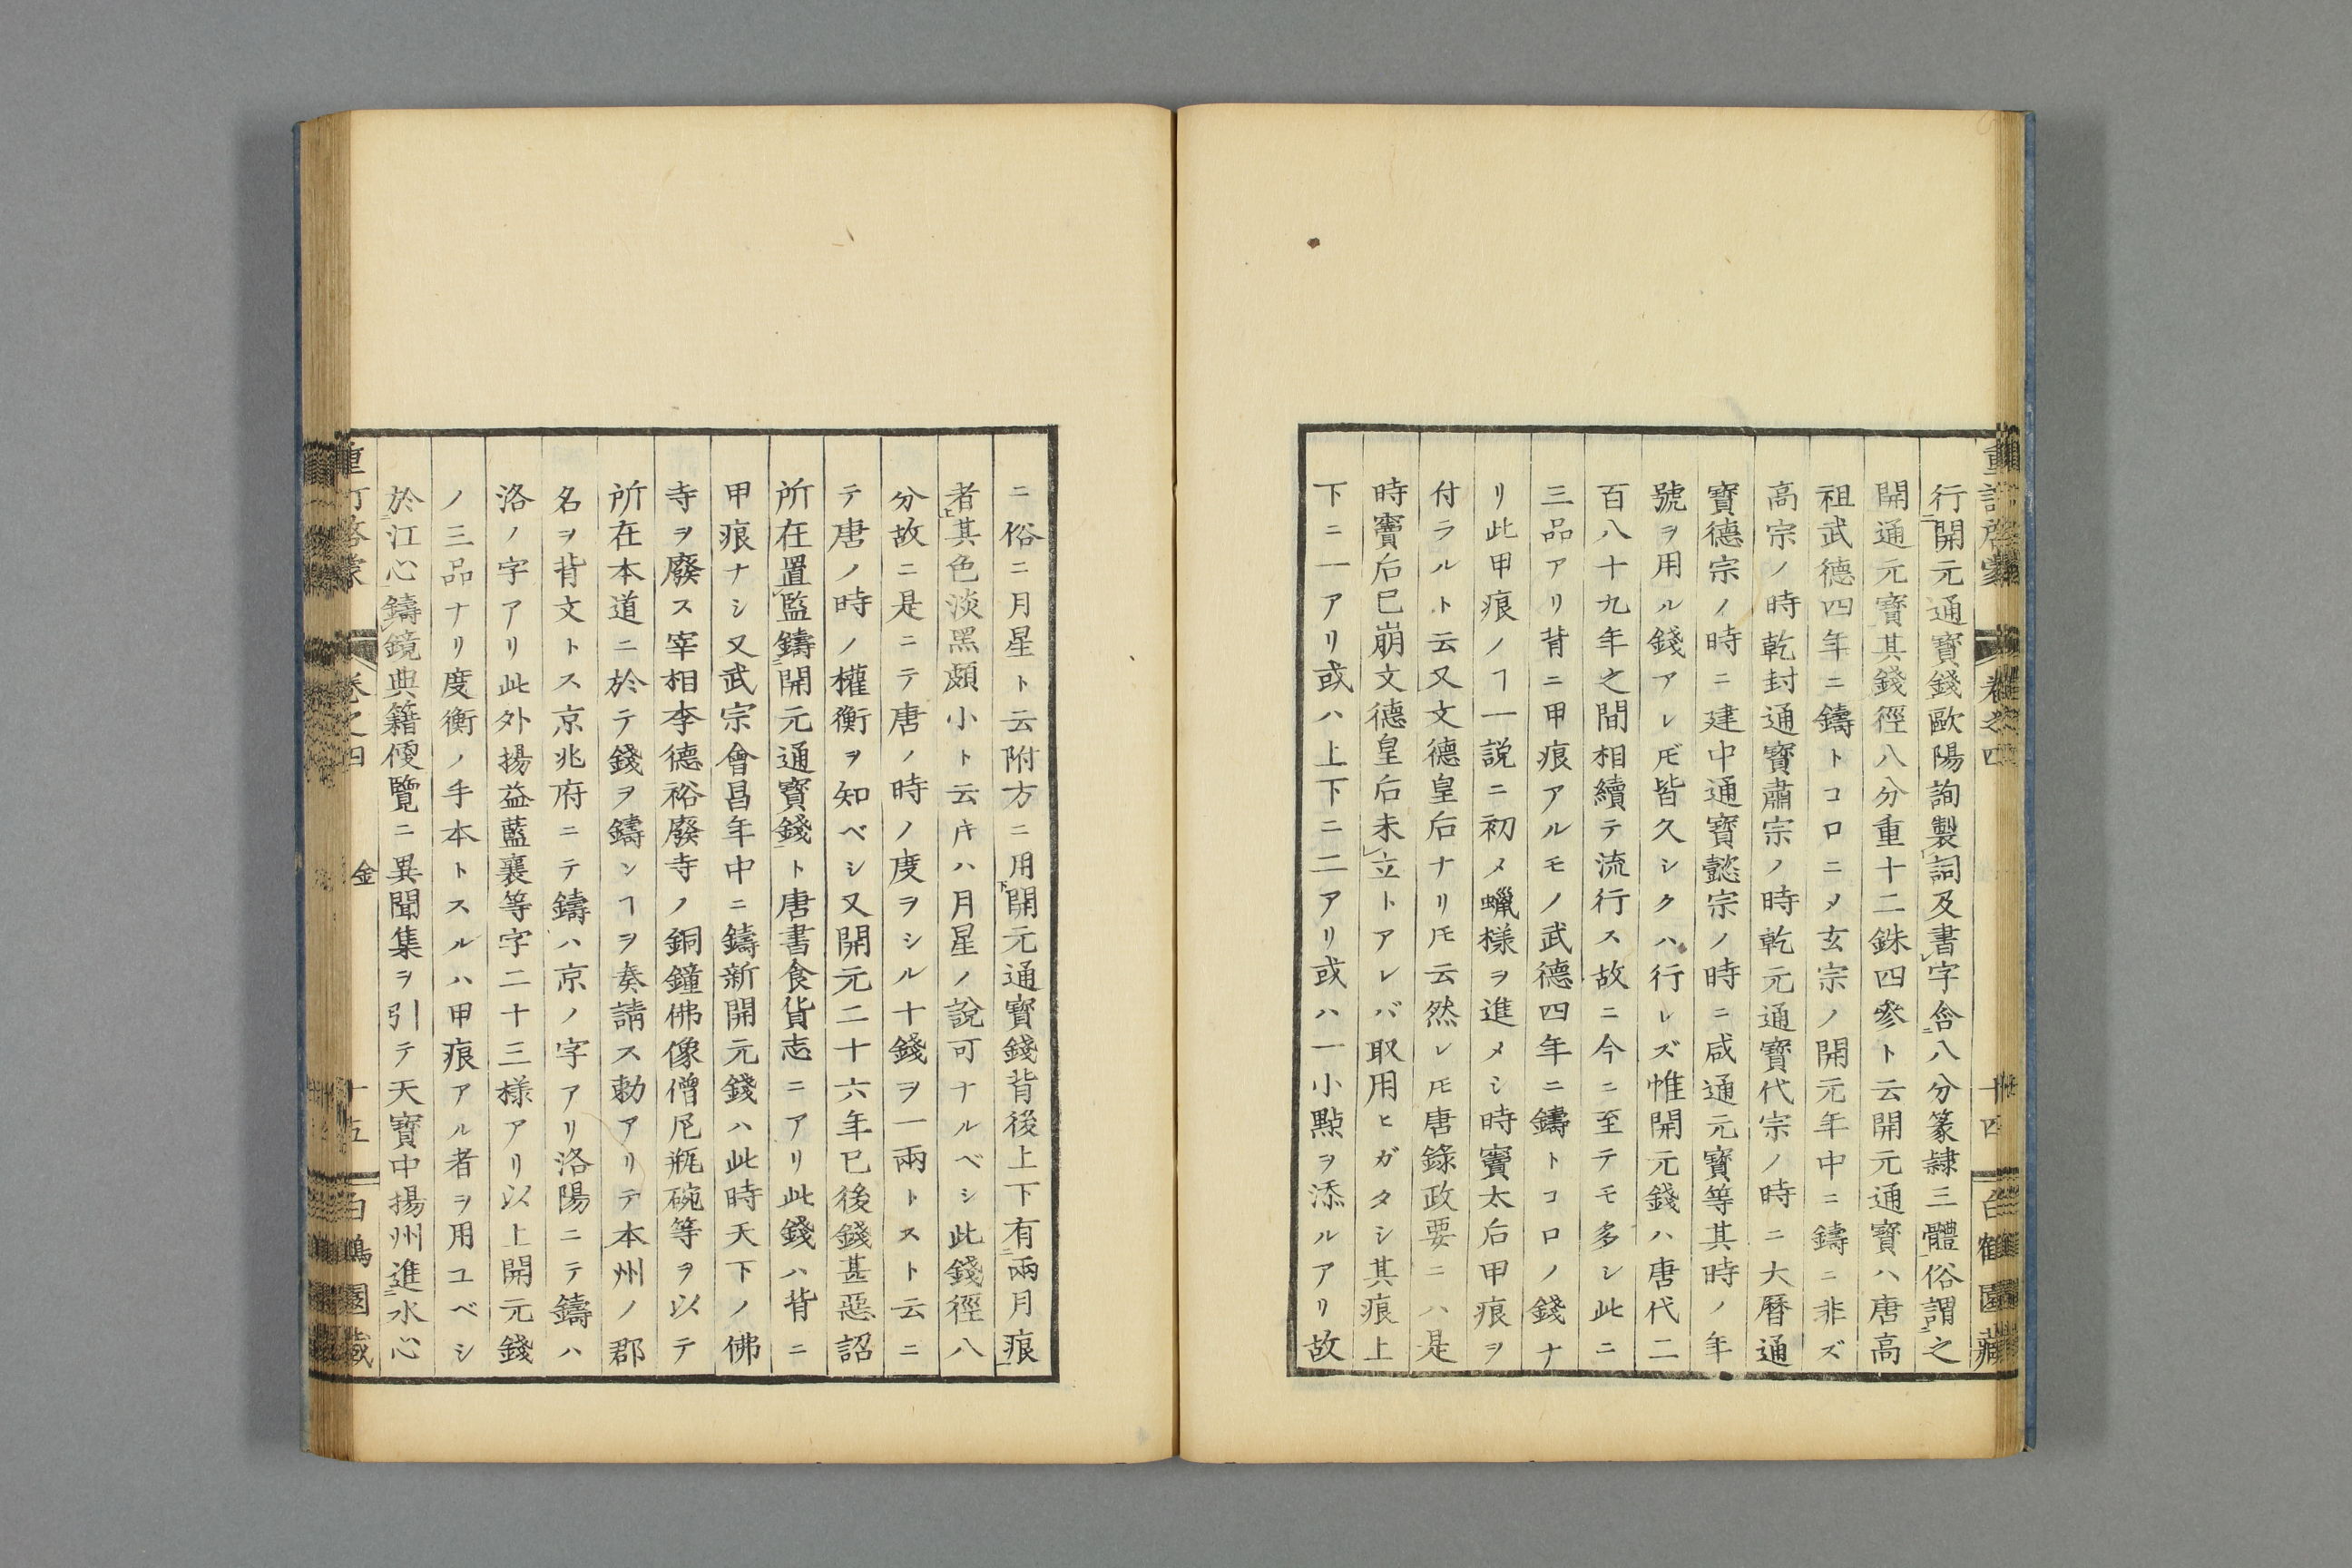 重訂啓蒙 卷之四 十四 白鶴園藏
行開元通寶錢歐陽詢製詞及書字含八分篆隷三體俗謂之
開通元寶其錢徑八分重十二銖四參ト云開元通寶ハ唐高
祖武德四年ニ鑄トコロニメ玄宗ノ開元年中ニ鑄ニ非ズ
高宗ノ時乾封通寶肅宗ノ時乾元通寶代宗ノ時ニ大曆通
寶德宗ノ時ニ建中通寶懿宗ノ時ニ咸通元寶等其時ノ年
號ヲ用ル錢アレ𪜈皆久シクハ行レズ惟開元錢ハ唐代二
百八十九年之間相續テ流行ス故ニ今ニ至テモ多シ此ニ
三品アリ背ニ甲痕アルモノ武德四年ニ鑄トコロノ錢ナ
リ此甲痕ノヿ一説ニ初メ蠟樣ヲ進メシ時竇太后甲痕ヲ
付ラルト云又文德皇后ナリ𪜈云然レ𪜈唐錄政要ニハ是
時竇后已崩文德皇后未立トアレバ取用ヒガタシ其痕上
下ニ一アリ或ハ上下ニ二アリ或ハ一小點ヲ添ルアリ故
ニ俗ニ月星ト云附方ニ用開元通寶錢背後上下有兩月痕
者其色淡黑頗小ト云トキハ月星ノ說可ナルベシ此錢徑八
分故ニ是ニテ唐ノ時ノ度ヲシル十錢ヲ一兩トスト云ニ
テ唐ノ時ノ權衡ヲ知ベシ又開元二十六年已後錢甚惡詔
所在置監鑄開元通寶錢ト唐書食貨志ニアリ此錢ハ背ニ
甲痕ナシ又武宗會昌年中ニ鑄新開元錢ハ此時天下ノ佛
寺ヲ廢ス宰相李德裕廢寺ノ銅鐘佛像僧尼瓶碗等ヲ以テ
所在本道ニ於テ錢ヲ鑄ンヿヲ奏請ス勅アリテ本州ノ郡
名ヲ背文トス京兆府ニテ鑄ハ京ノ字アリ洛陽ニテ鑄ハ
洛ノ字アリ此外揚益藍襄等字二十三樣アリ以上開元錢
ノ三品ナリ度衡ノ手本トスルハ甲痕アル者ヲ用ユベシ
於江心鑄鏡典籍便覽ニ異聞集ヲ引テ天寶中揚州進水心
重訂啓蒙 卷之四 金 十五 白鶴園藏